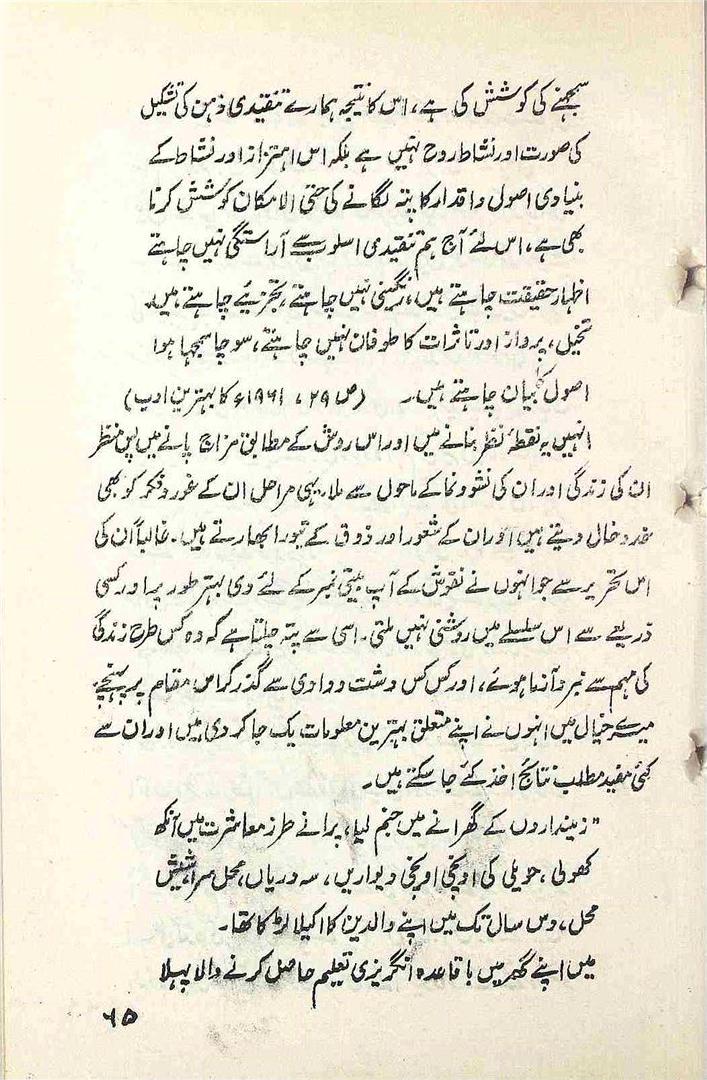 سمجھنے کی کوشش کی ہے، اس کا نتیجہ ہمارے تنقیدی ذہن کی تشکیل
کی صورت اور نشاط روح نہیں ہے بلکہ اس اہتزاز اور نشاط کے
بنیادی اصول و اقدار کا پتہ لگانے کی حتی الامکان کوشش کرنا
بھی ہے، اس لئے آج ہم تنقیدی اسلوب سے آراستگی نہیں چاہتے
اظہار حقیقت چاہتے ہیں، رنگینی نہیں چاہتے، تجزیئے چاہتے ہیں۔
تخیل، پرواز اور تاثرات کا طوفان نہیں چاہتے، سوچا سمجھا ہوا
اصول کا بیان چاہتے ہیں۔ (ص ۲۹، ۱۹۶۱ء کا بہترین ادب)
انہیں یہ نقطۂ نظر بنانے میں اور اس روش کے مطابق مزاج پانے میں پس منظر
ان کی زندگی اور ان کی نشوونما کے ماحول سے ملا۔ یہی مراحل ان کے غور و فکر کو بھی
خدوخال دیتے ہیں اور ان کے شعور اور ذوق کے تیور ابھارتے ہیں۔ غالباً ان کی
اس تحریر سے جو انہوں نے نقوش کے آپ بیتی نمبر کے لئے دی بہتر طور پر اور کسی
ذریعے سے اس سلسلے میں روشنی نہیں ملتی۔ اسی سے پتہ چلتا ہے کہ وہ کس طرح زندگی
کی مہم سے نبرد آزما ہوئے، اور کس کس دشت و وادی سے گذر کر اس مقام پر پہنچے،
میرے خیال میں انہوں نے اپنے متعلق بہترین معلومات یک جا کر دی ہیں اور ان سے
کئی مفید مطلب نتائج اخذ کئے جا سکتے ہیں۔
"زمینداروں کے گھرانے میں جنم لیا، پرانے طرز معاشرت میں آنکھ
کھولی، حویلی کی اونچی اونچی دیواریں، سہ دریاں، محل سرا، شیش
محل، دس سال تک میں اپنے والدین کا اکیلا لڑکا تھا۔
میں اپنے گھر میں باقاعدہ انگریزی تعلیم حاصل کرنے والا پہلا
۶۵